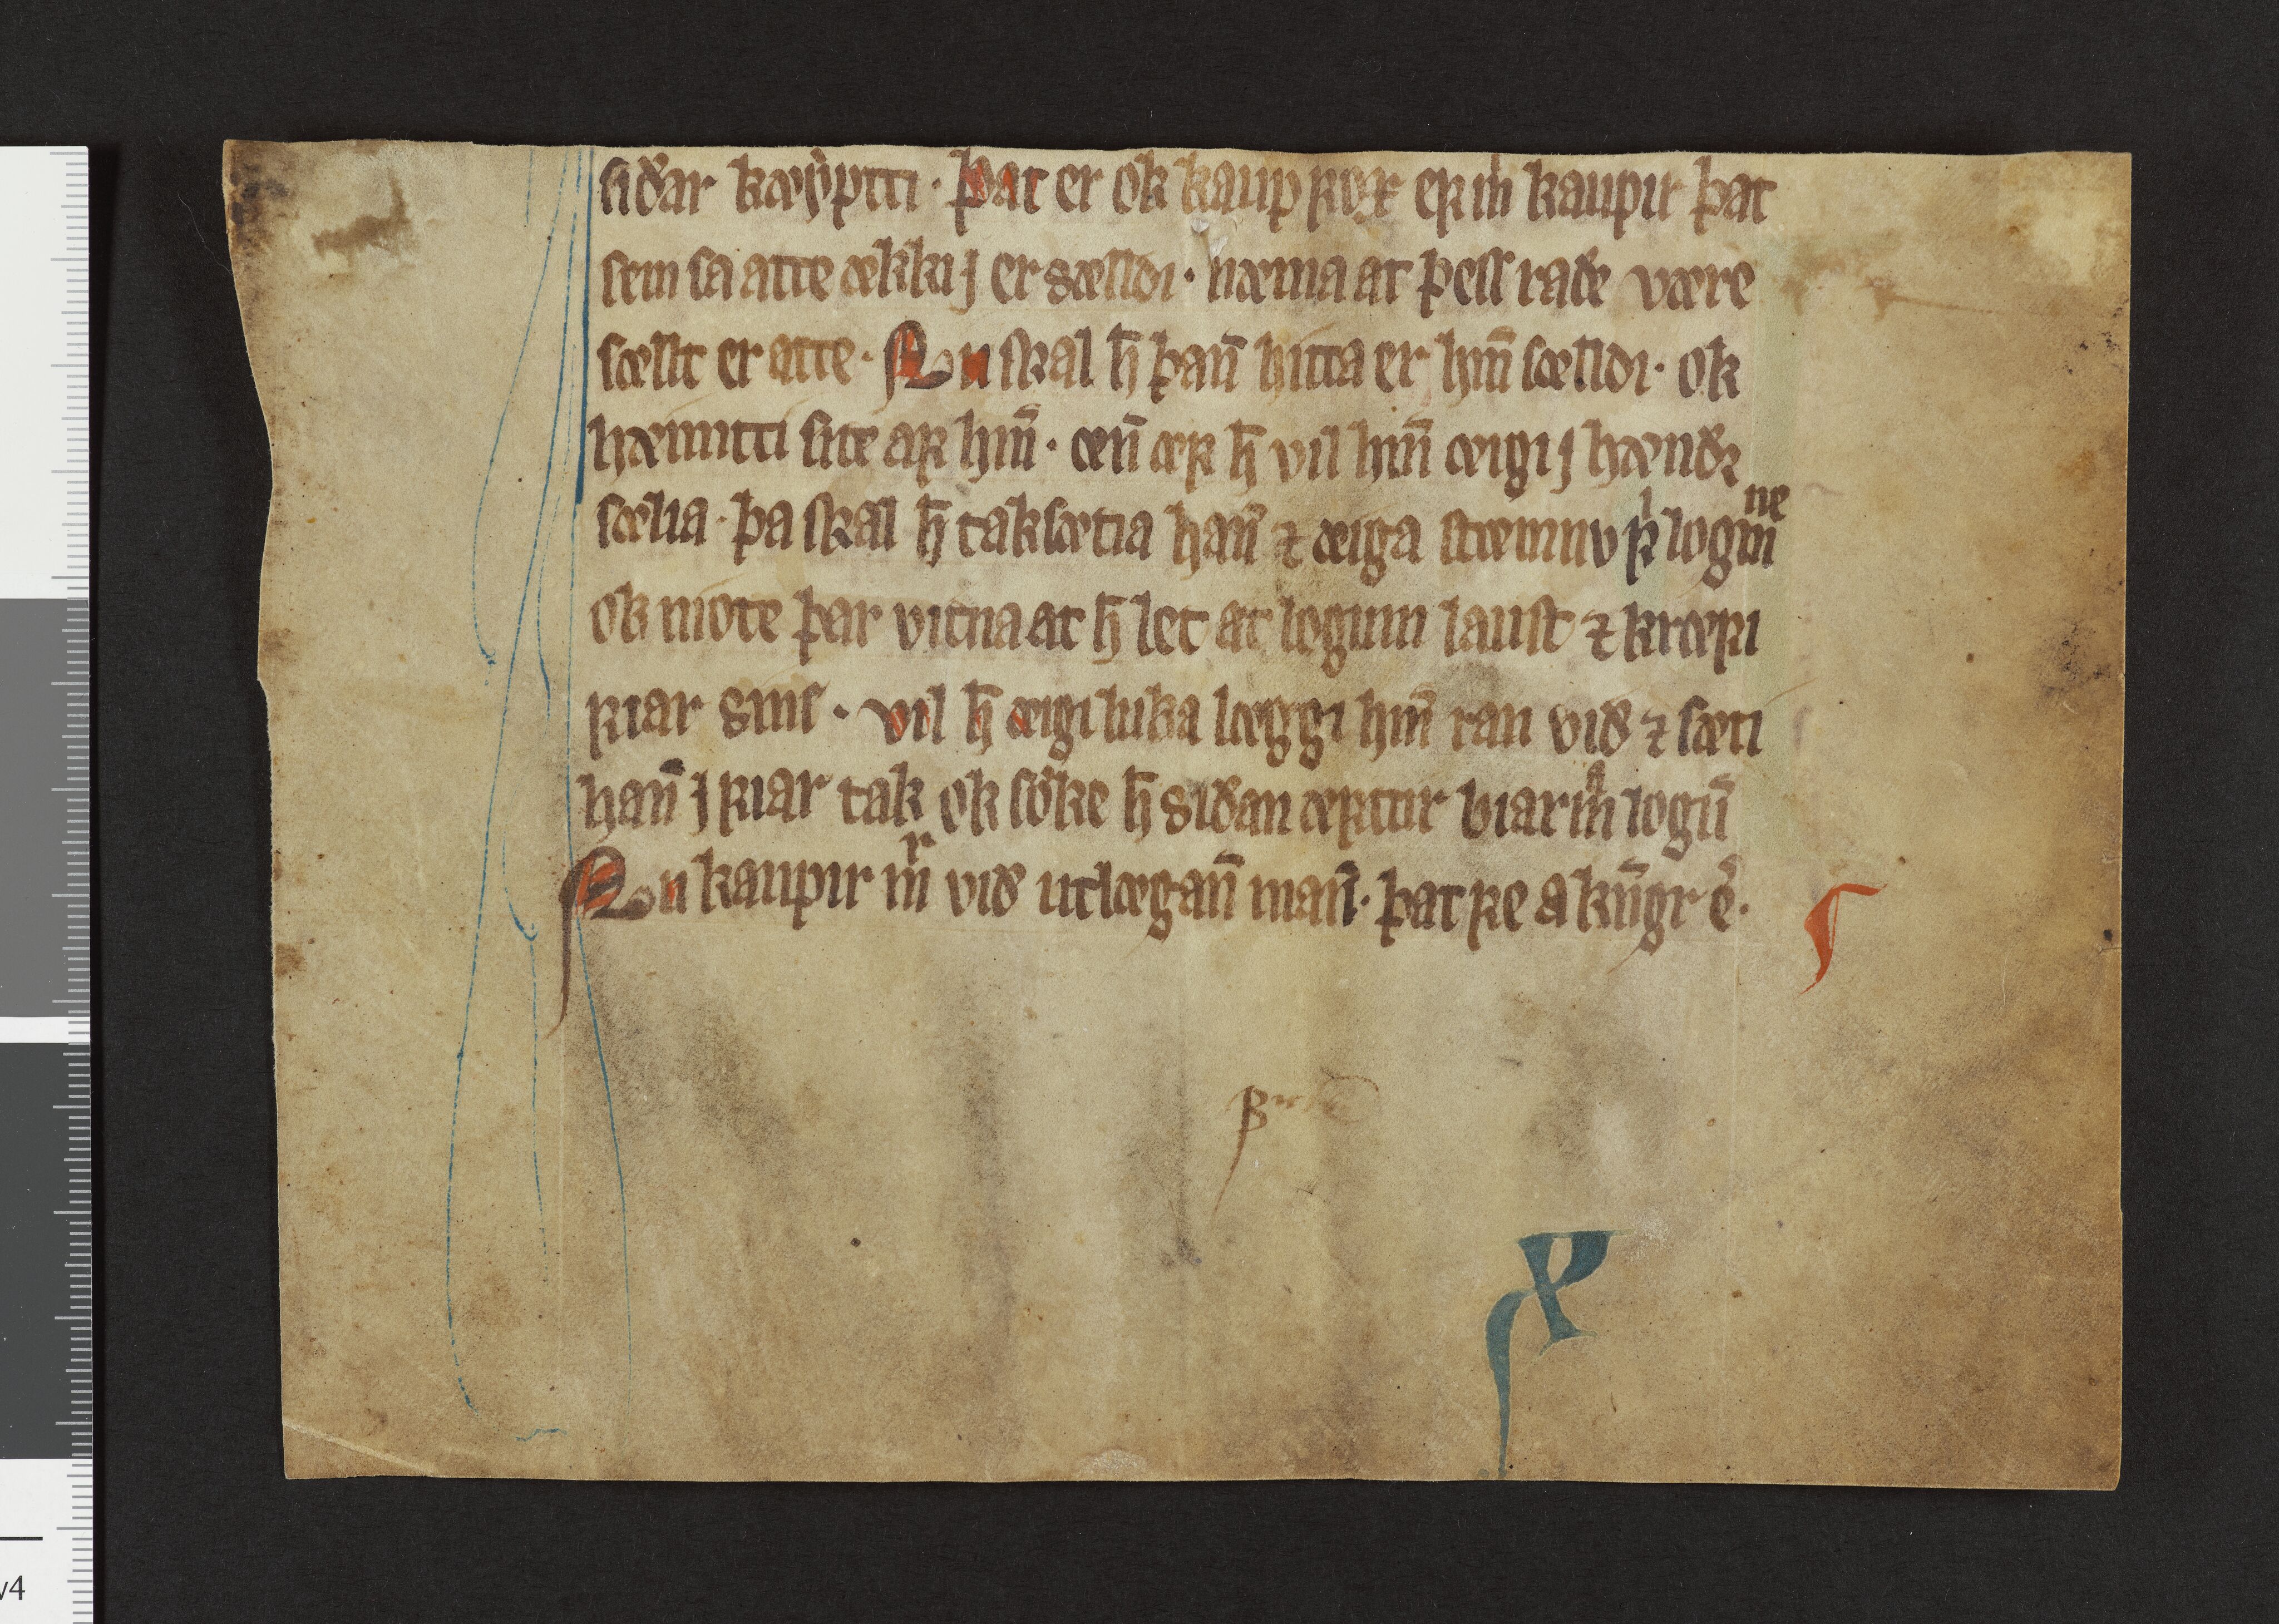 siðar kæyptti · þat er ok kaup ꝼox eꝼ m̄ kaupir þat
sem sa atte ækki j er sælldi · næma at þess raðe være
sællt er atte · Nu skal h̄ þan̄ hitta er hm̄ sælldi · ok
hæimtti sitt aꝼ hm̄ · æn̄ æꝼ h̄ vil hm̄ æigi j hændꝛ
sælia · þa skal h̄ taksætia han̄ ⁊ æiga stæmnv ꝼ logmne
ok niote þar vitna at h̄ let at logum laust ⁊ kræꝼi
ꝼiar sins · vil h̄ æigi luka læggi hm̄ ran við ⁊ sæti
han̄ j ꝼiar tak ok söke h̄ siðan æꝼttir biarm̄ logū
Nu kaupir mr̄ við utlægan̄ man̄ · þat ꝼe a kn̄gr ē ·
v4